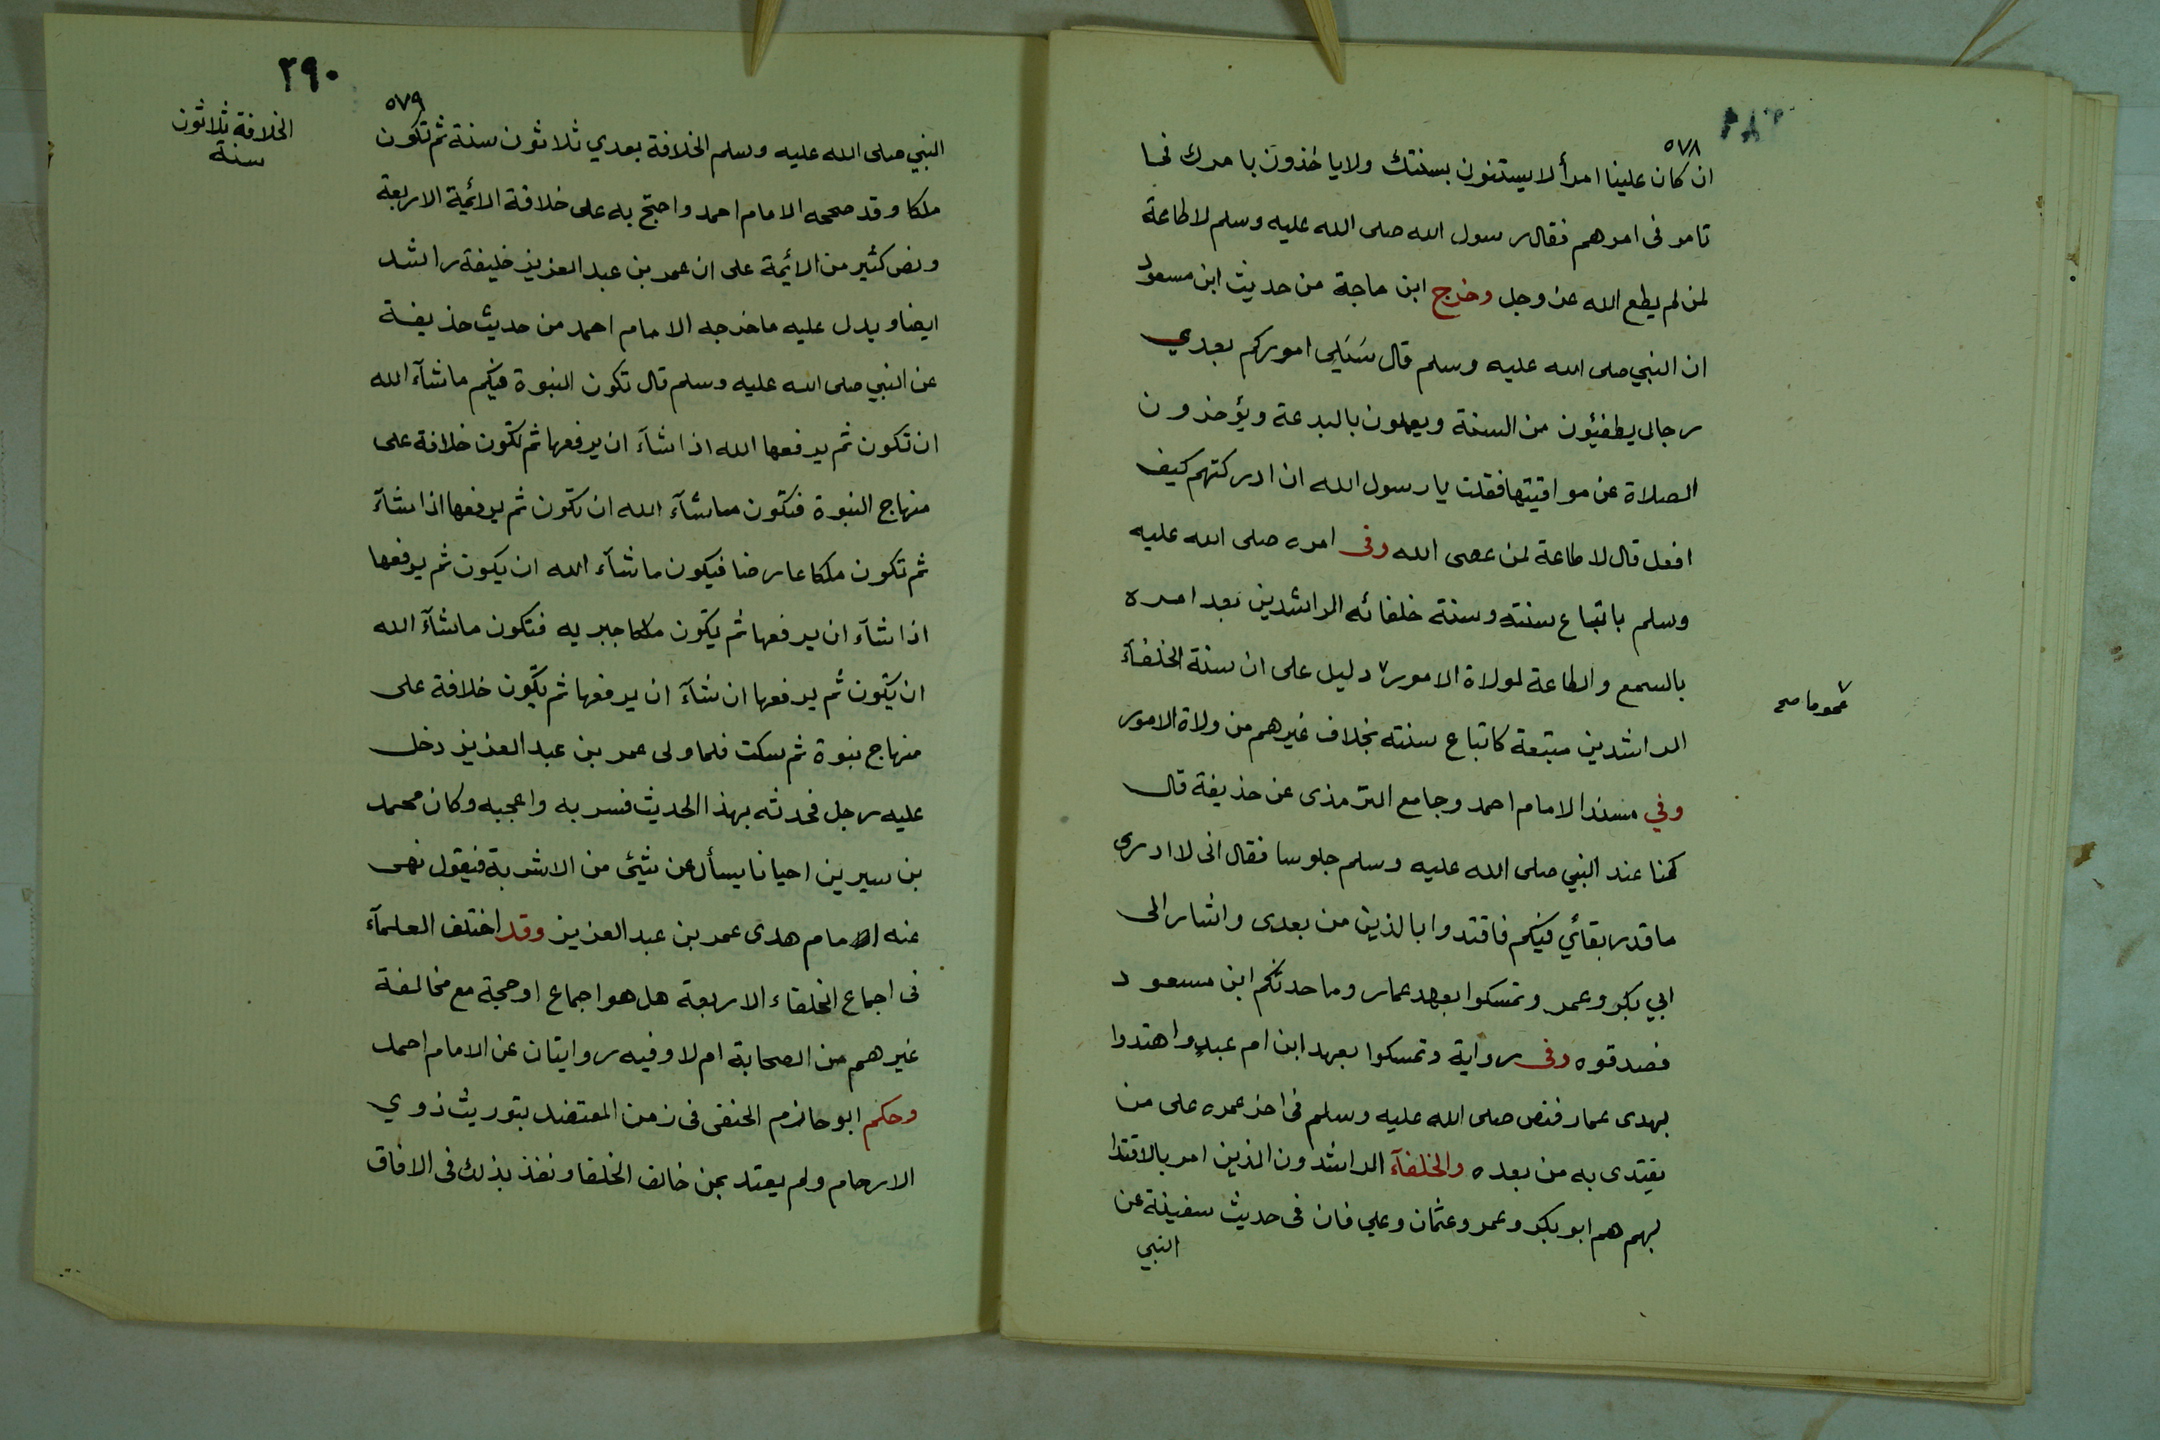 ٥٧٨
ان كان علينا امرأ لا يستنون بسنتك ولا ياخذون بامرك فما
تامر فى امرهم فقال رسول الله صلى الله عليه وسلم لا طاعة
لمن لم يطع الله عز وجل وخرج ابن ماجة من حديث ابن مسعود
ان النبي صلى الله عليه وسلم قال سَيَلِى اموركم بعدي
رجال يطفيئون من السنة ويعملون بالبدعة ويؤخذون
الصلاة عن مواقيتها فقلت يا رسول الله ان ادركتهم كيف
افعل قال لا طاعة لمن عصى الله وفى امره صلى الله عليه
وسلم باتباع سنته وسنة خلفائه الراشدين بعد امره
بالسمع والطاعة لولاة الامور٧ دليل على ان سنة الخلفآء
٧
عموما صح
الراشدين متبعة كاتباع سنته بخلاف غيرهم من ولاة الامور
وفي مسند الامام احمد وجامع الترمذى عن حذيفة قال
كنا عند النبي صلى الله عليه وسلم جلوسا فقال انى لا ادرى
ما قدر بقائي فيكم فاقتدوا بالذين من بعدى واشار الى
ابي بكر وعمر وتمسكوا بعهد عمار وما حدثكم ابن مسعود
فصدقوه وفى رواية وتمسكوا بعهد ابن ام عبدٍ واهتدوا
بهدى عمار فنص صلى الله عليه وسلم فى اخر عمره على من
يقتدى به من بعده والخلفآء الراشدون الذين امر بالاقتدا
بهم هم ابو بكر وعمر وعثمان وعلي فان فى حديث سفينة عن
النبي
٢٩٠
٥٧٩
الخلافة ثلاثون
سنة
النبي صلى الله عليه وسلم الخلافة بعدي ثلاثون سنة ثم تكون
ملكا وقد صححه الامام احمد واحتج به على خلافة الائمة الاربعة
ونص كثير من الائمة على ان عمر بن عبد العزيز خليفة راشد
ايضا ويدل عليه ما خرجه الامام احمد من حديث حذيفة
عن النبي صلى الله عليه وسلم قال تكون النبوة فيكم ما شآء الله
ان تكون ثم يرفعها الله اذا شآء ان يرفعها ثم تكون خلافة على
منهاج النبوة فتكون ما شآء الله ان تكون ثم يرفعها اذا شآء
ثم تكون ملكا عارضا فيكون ما شآء الله ان يكون ثم يرفعها
اذا شآء ان يرفعها ثم يكون ملكا جبريه فتكون ما شآء الله
ان يكون ثم يرفعها ان شآء ان يرفعها ثم يكون خلافة على
منهاج نبوة ثم سكت فلما ولى عمر بن عبد العزيز دخل
عليه رجل فحدثه بهذا الحديث فسر به واعجبه وكان محمد
بن سيرين احيانا يسأل عن شيئ من الاشربة فيقول نهى
عنه امام هدى عمر بن عبد العزيز وقد اختلف العلمآء
فى اجماع الخلفاء الاربعة هل هو اجماع او حجة مع مخالفة
غيرهم من الصحابة ام لا وفيه روايتان عن الامام احمد
وحكم ابو حازم الحنفى فى زمن المعتضد بتوريث ذوي
الارحام ولم يعتد بمن خالف الخلفا ونفذ بذلك فى الافاق